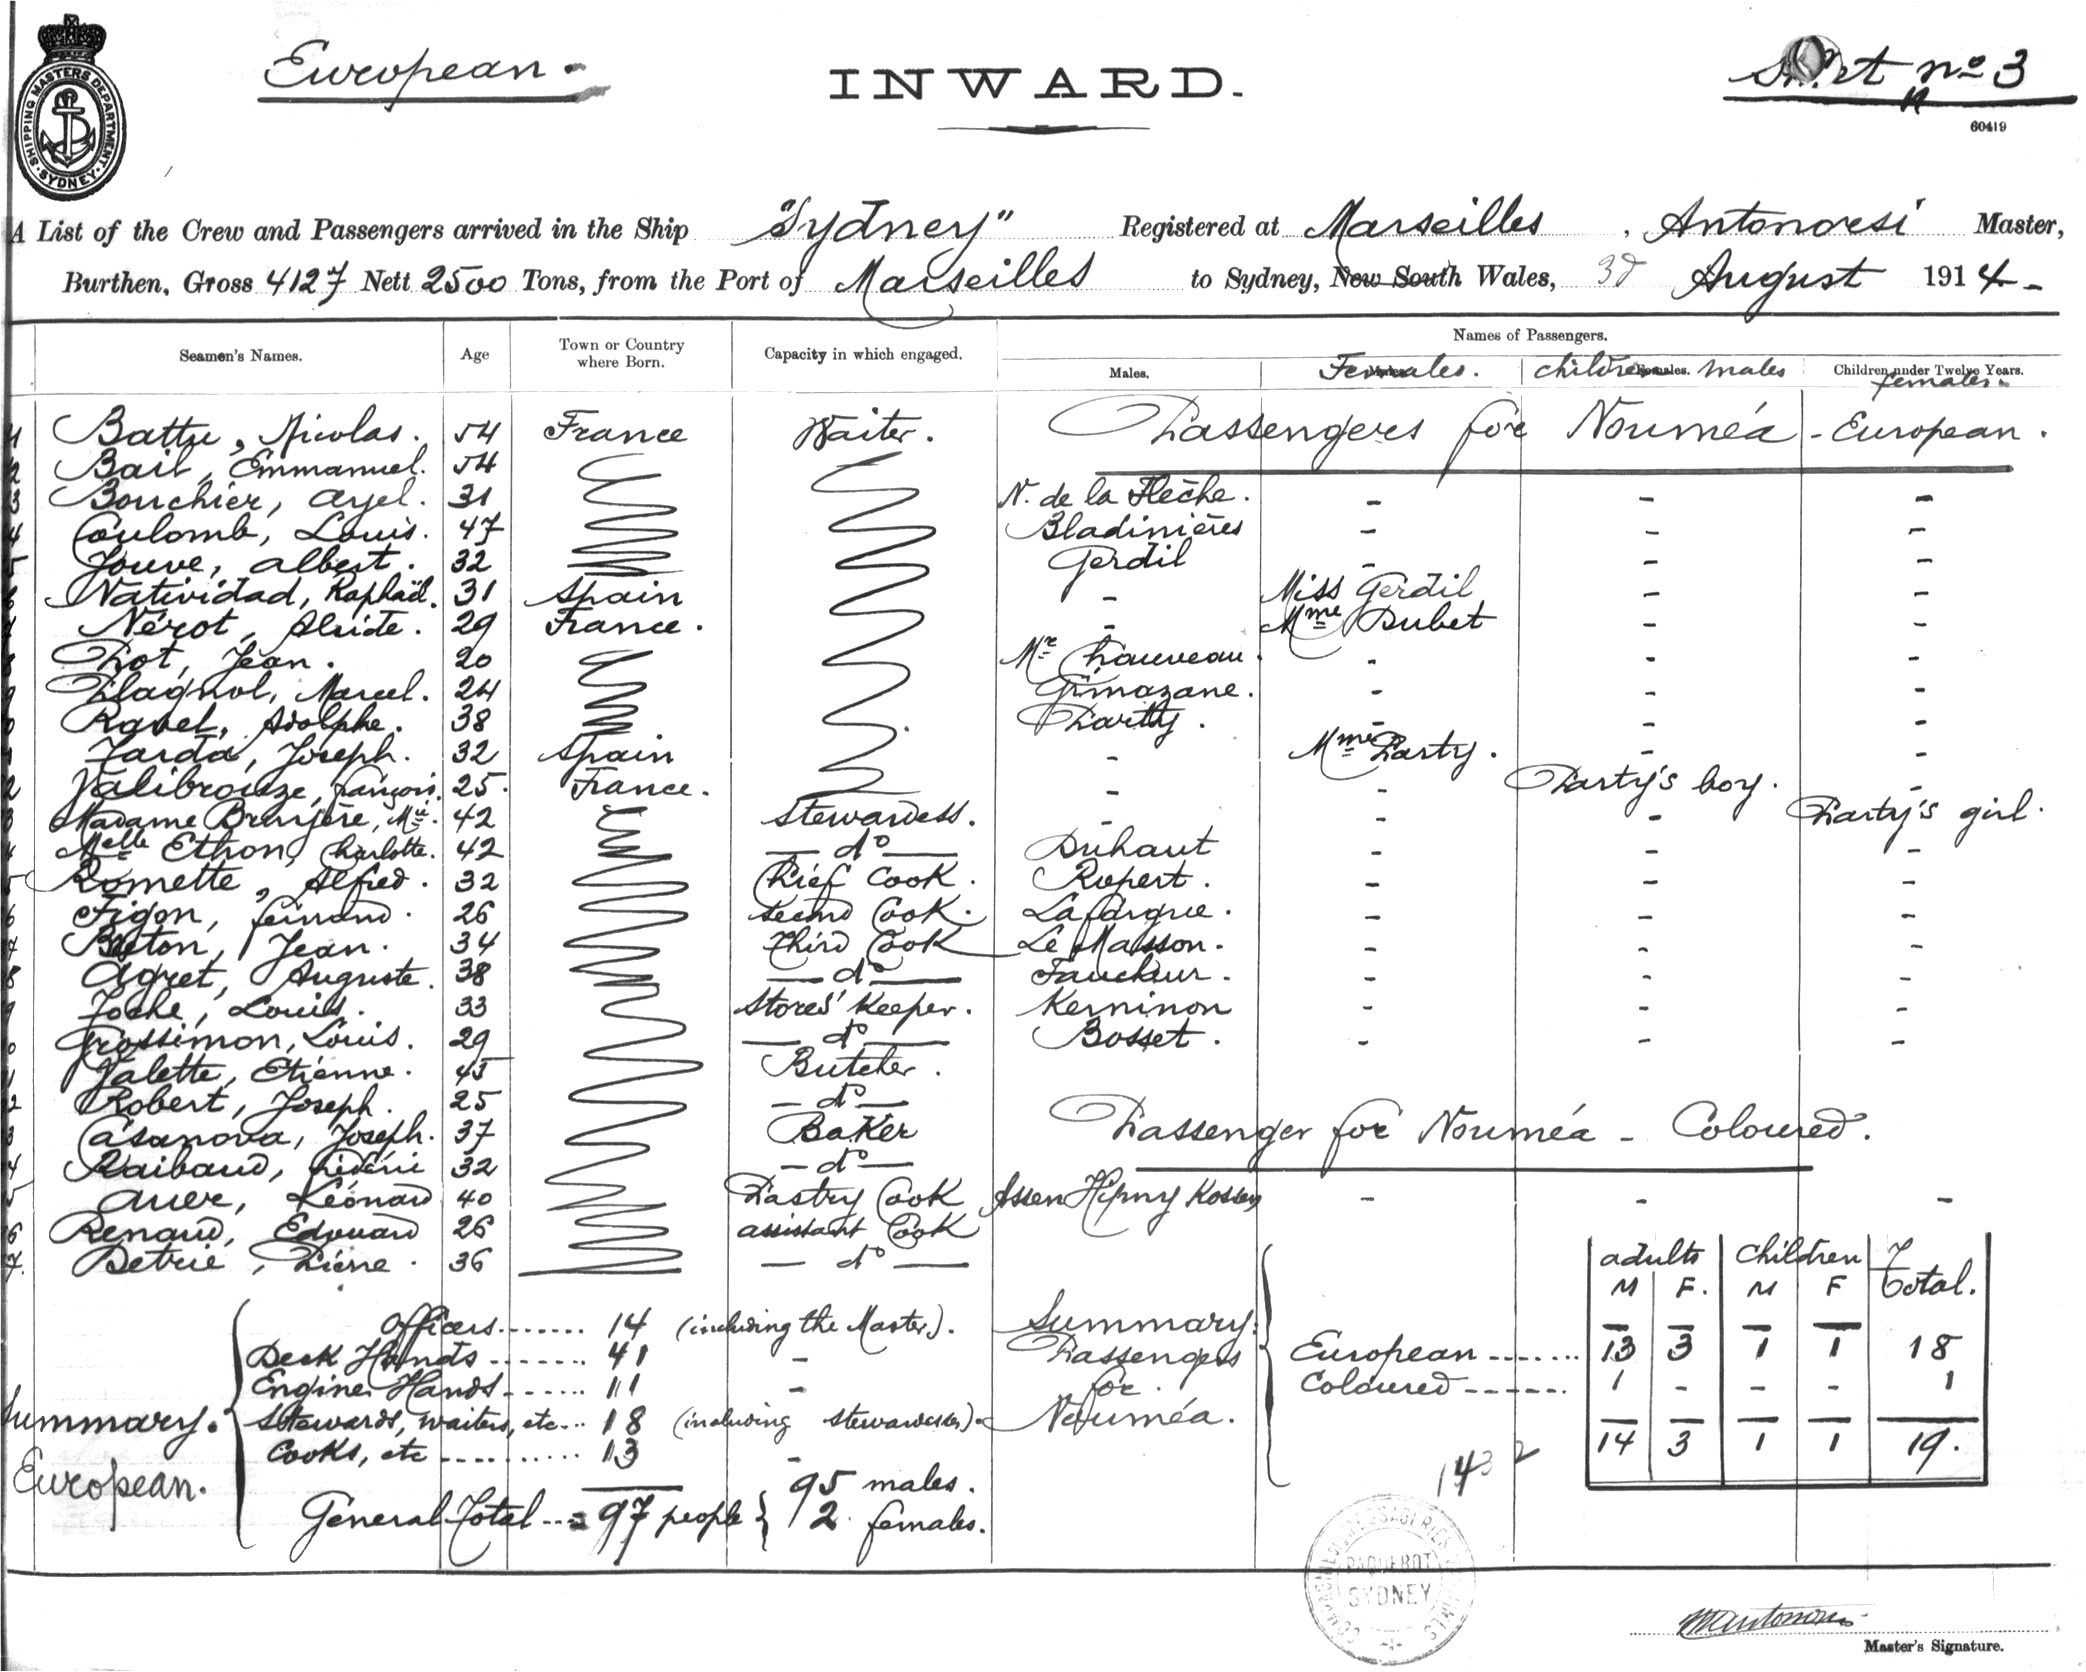 European.
INWARD.
Sheet no 3
60419
SHIPPING MASTERS DEPARTMENT SYDNEY
A List of the Crew and Passengers arrived in the Ship "Sydney" Registered at Marseilles, Antonoresi Master,
Burthen, Gross 4127 Nett 2500 Tons, from the Port of Marseilles to Sydney, New South Wales, 3d August 1914-
Names of Passengers.
Seamen's Names. Age Town or Country where Born. Capacity in which engaged. Males. Females. Children males Children under Twelve Years. females.
1 Battu, Nicolas. 54 France Waiter. Passengers for Nouméa - European.
2 Bail, Emmanuel. 54
3 Bouchier, Ayel. 31 N. de la Flèche. - - -
4 Coulomb, Louis. 47 Bladinières - - -
5 Jouve, Albert. 32 Gerdil - - -
6 Natividad, Raphaël. 31 Spain - Miss Gerdil - -
7 Nérot, Alcide. 29 France. - Mme Dubet - -
8 Pot, Jean. 20 Mr Chauveau. - - -
9 Plagnol, Marcel. 24 Grimazane. - - -
0 Ravel, Adolphe. 38 Party. - - -
1 Tarda, Joseph. 32 Spain - Mme Party. - -
2 Valibrouze, François. 25. France. - - Party's boy. -
3 Madame Bruyère, Mie. 42 Stewardess. - - - Party's girl.
4 Melle Ethon, Charlotte. 42 do Duhaut - - -
5 Romette, Alfred. 32 Chief Cook. Rupert. - - -
6 Figon, Fernand. 26 Second Cook. Lafargue. - - -
7 Breton, Jean. 34 Third Cook Le Masson. - - -
8 Agret, Auguste. 38 do Faucheur. - - -
9 Foche, Louis. 33 Stores' Keeper. Kerninon - - -
0 Grossimon, Louis. 29 do Bosset. - - -
1 Valette, Etienne. 45 Butcher.
2 Robert, Joseph. 25 - do -
3 Casanova, Joseph. 37 Baker Passenger for Nouméa - Coloured.
4 Raibaud, Frédéric 32 - do -
5 Auer, Léonard 40 Pastry Cook Assen Hipny Kossen - - -
6 Renaud, Edouard 26 assistant Cook
7. Detrie, Pierre. 36 - do -
adults Children Total.
M F. M F
Summary. European.
Officers....... 14 (including the Master).
Deck Hands....... 41 -
Engine Hands....... 11 -
Stewards, waiters, etc... 18 (including stewardesses).
Cooks, etc.......... 13 -
General Total... = 97 people } 95 males.
2 females.
Summary: Passengers for Nouméa.
European....... 13 3 1 1 18
Coloured...... 1 - - - 1
14 3 1 1 19.
143 2
COMPAGNIE DES MESSAGERIES MARITIMES
PAQUEBOT
SYDNEY
Master's Signature.